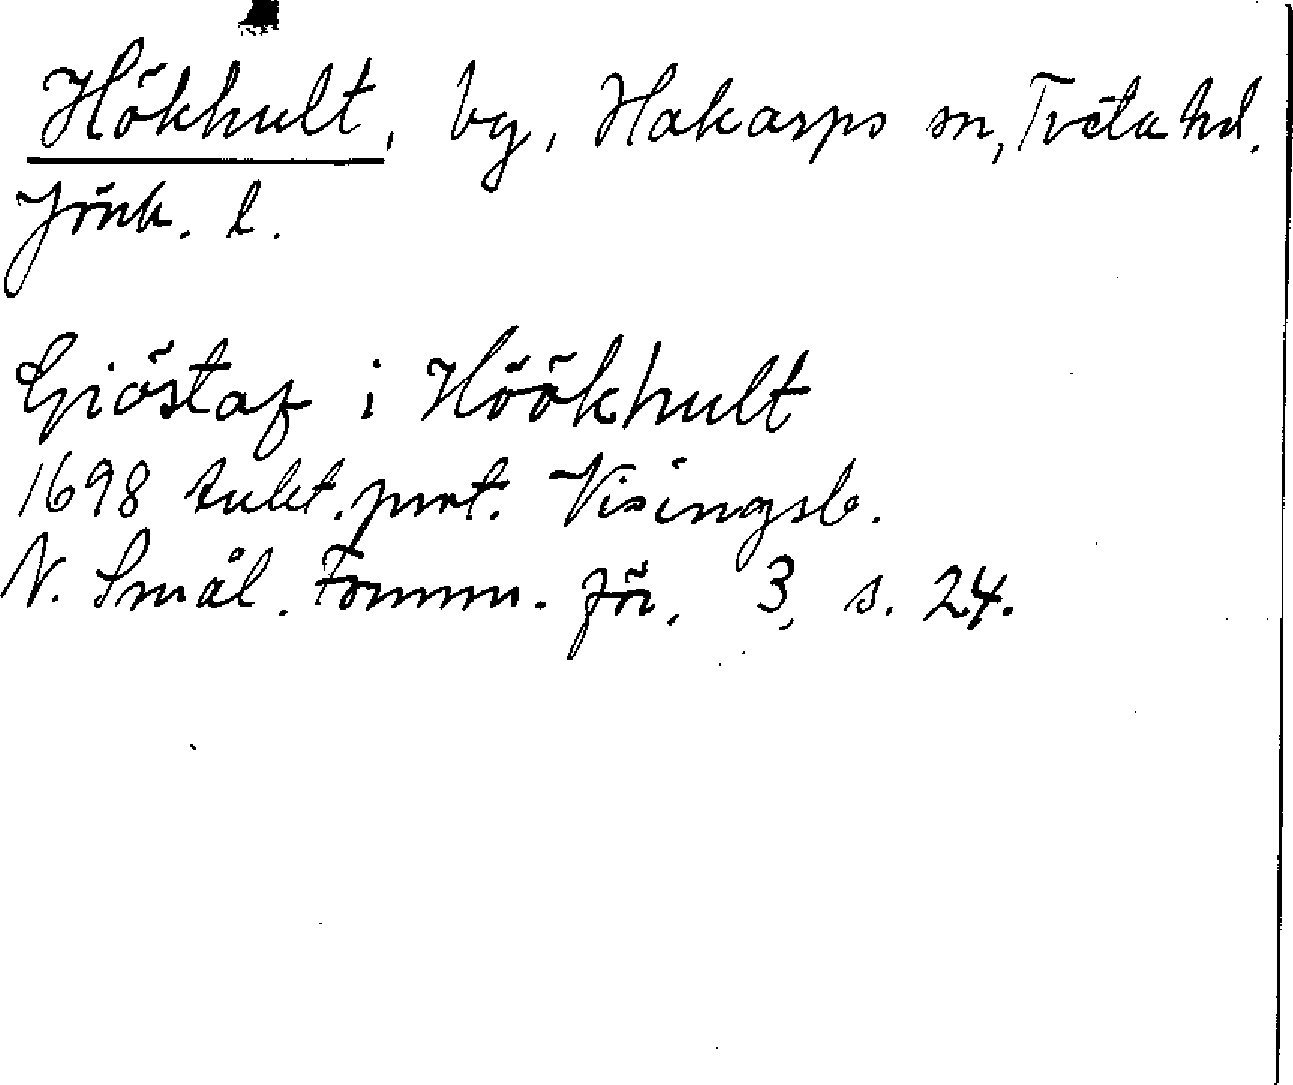 Hökhult, by, Hakarps sn, Tveta hd.
Jönk. l.
Giöstaf i Höökhult
1698 tukt.prot. Visingsb.
N. Smål. Fornm. för. 3, s. 24.